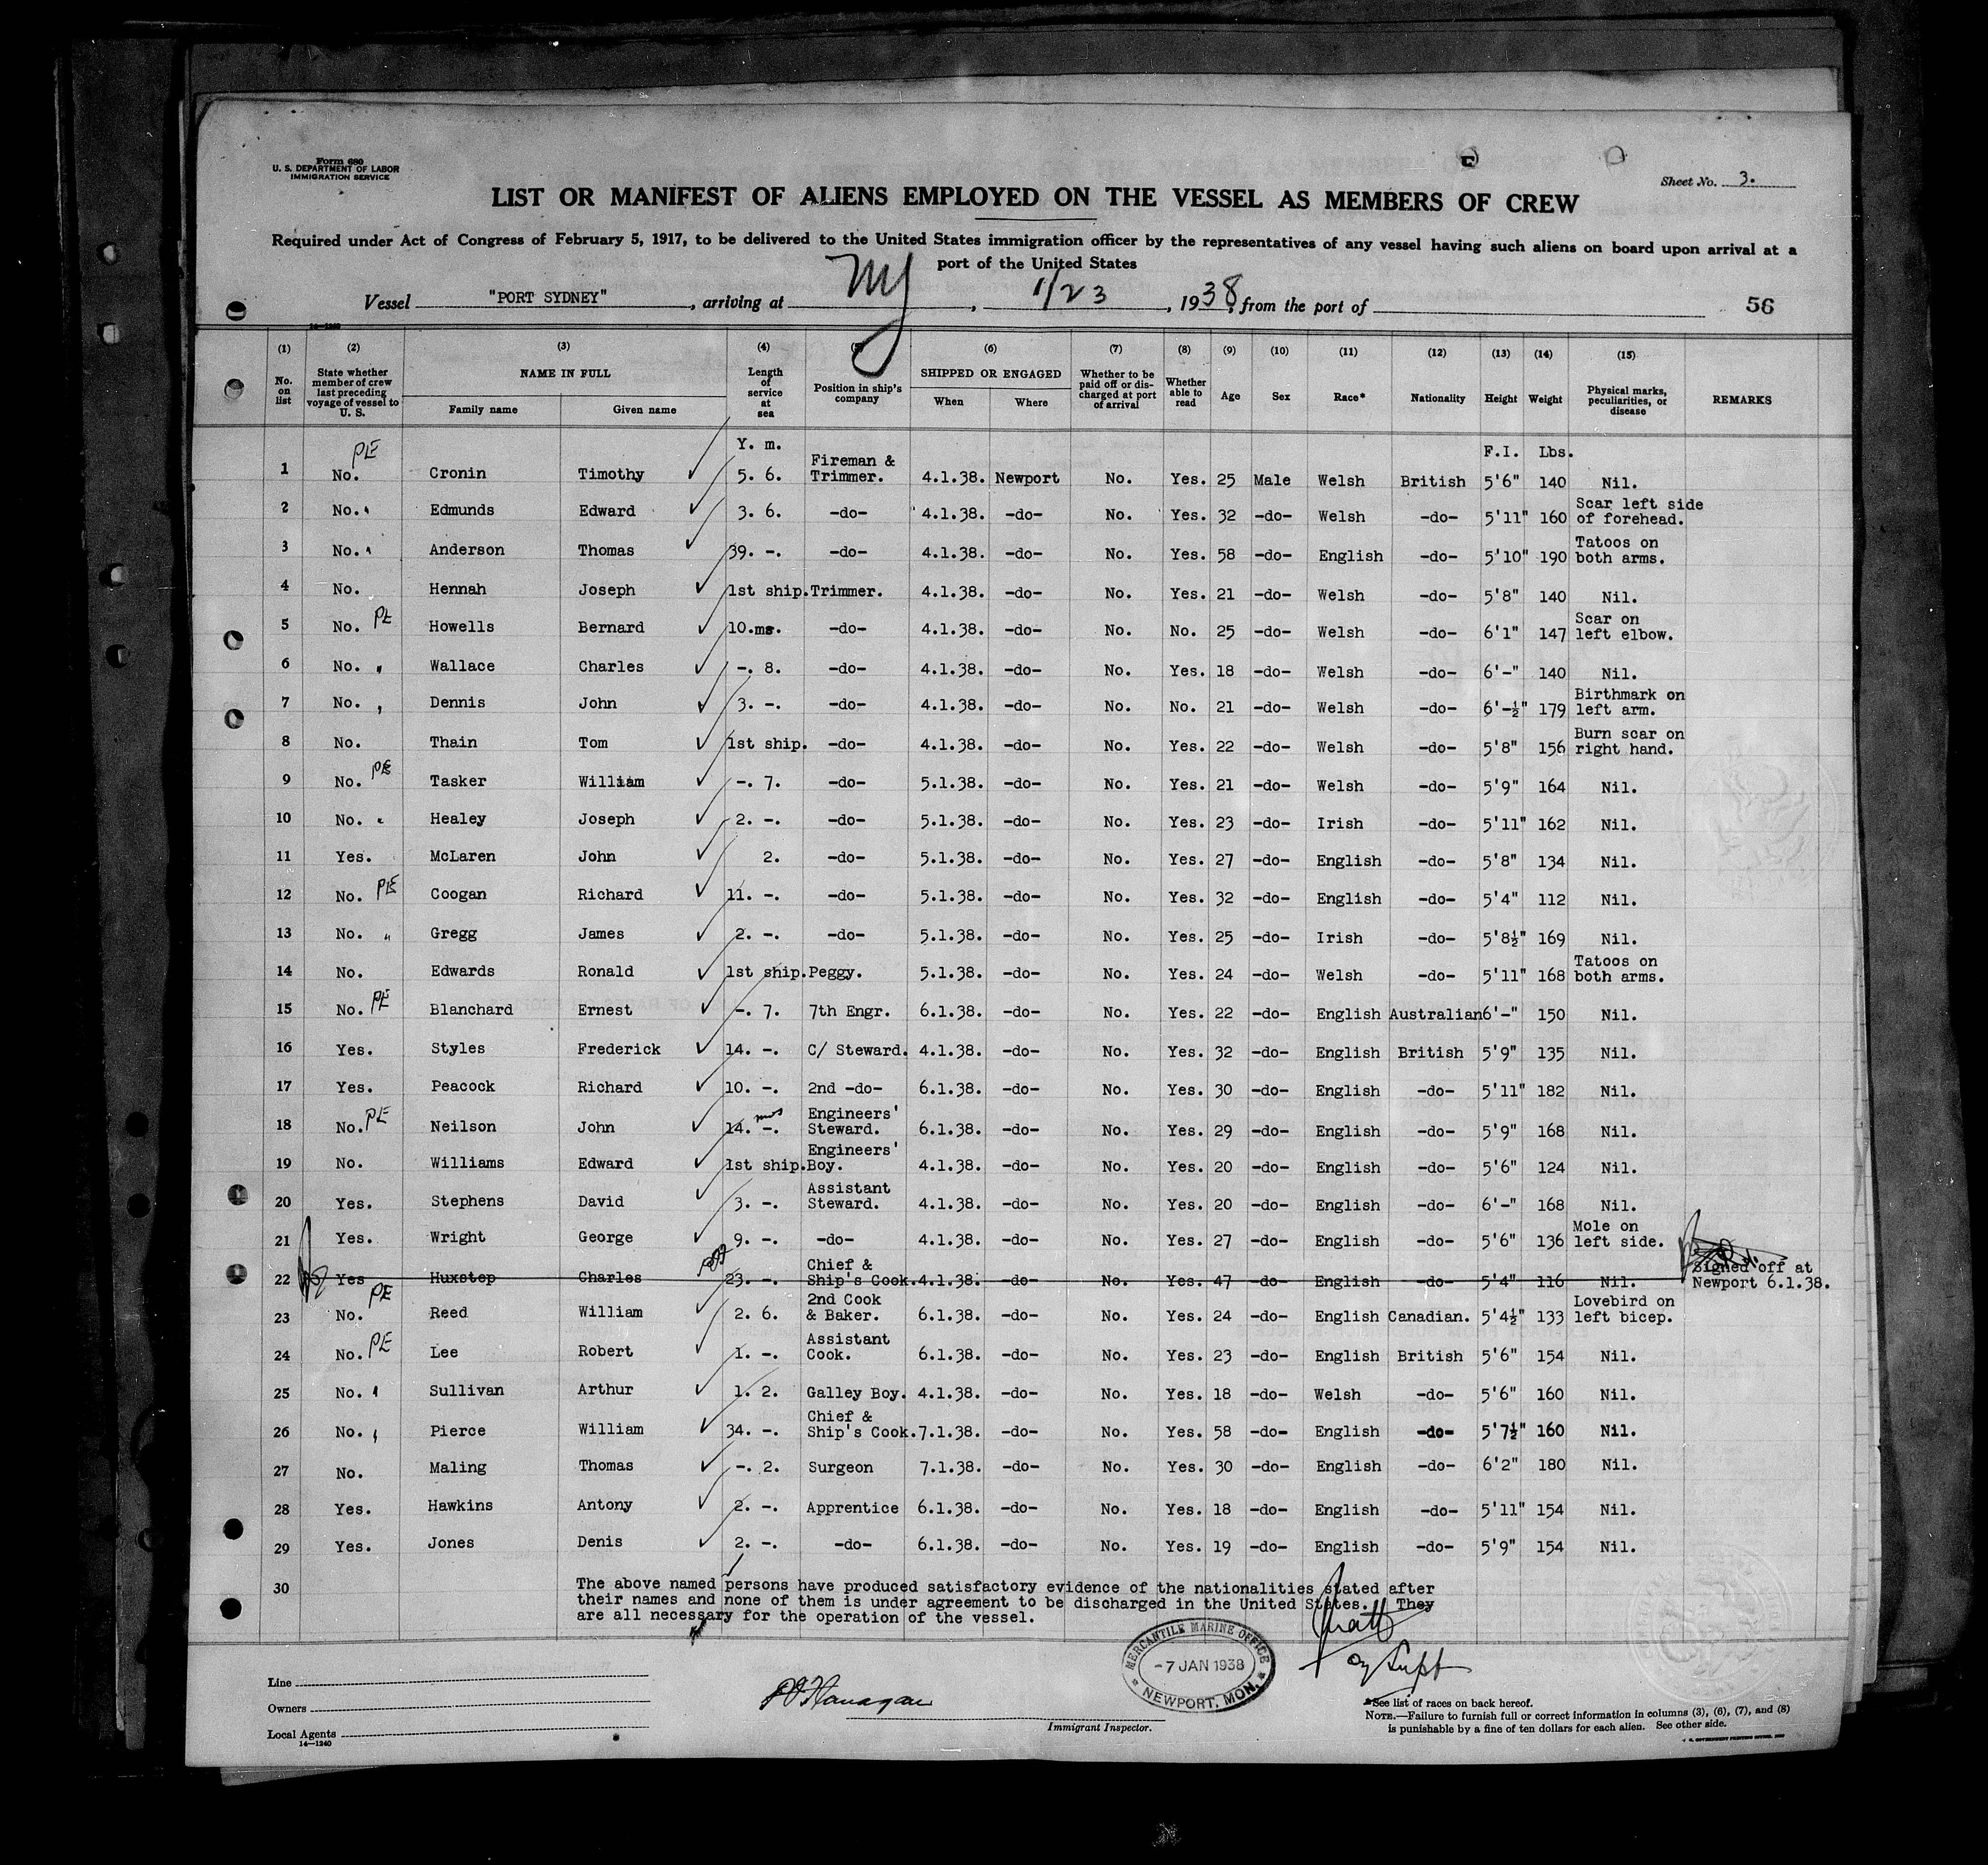 Form 680
U. S. DEPARTMENT OF LABOR
IMMIGRATION SERVICE
Sheet No. 3.
LIST OR MANIFEST OF ALIENS EMPLOYED ON THE VESSEL AS MEMBERS OF CREW
Required under Act of Congress of February 5, 1917, to be delivered to the United States immigration officer by the representatives of any vessel having such aliens on board upon arrival at a
port of the United States
Vessel "PORT SYDNEY", arriving at NY, 1/23, 1938, from the port of 56
14—1240
(1) (2) (3) (4) (5) (6) (7) (8) (9) (10) (11) (12) (13) (14) (15)
No. on list State whether member of crew last preceding voyage of vessel to U. S. NAME IN FULL Family name Given name Length of service at sea Position in ship's company SHIPPED OR ENGAGED When Where Whether to be paid off or discharged at port of arrival Whether able to read Age Sex Race* Nationality Height Weight Physical marks, peculiarities, or disease REMARKS
Y. m. F.I. Lbs.
1 No. PE Cronin Timothy 5. 6. Fireman & Trimmer. 4.1.38. Newport No. Yes. 25 Male Welsh British 5'6" 140 Nil.
2 No. " Edmunds Edward 3. 6. -do- 4.1.38. -do- No. Yes. 32 -do- Welsh -do- 5'11" 160 Scar left side of forehead.
3 No. " Anderson Thomas 39. -. -do- 4.1.38. -do- No. Yes. 58 -do- English -do- 5'10" 190 Tatoos on both arms.
4 No. Hennah Joseph 1st ship. Trimmer. 4.1.38. -do- No. Yes. 21 -do- Welsh -do- 5'8" 140 Nil.
5 No. PE Howells Bernard 10.ms. -do- 4.1.38. -do- No. No. 25 -do- Welsh -do- 6'1" 147 Scar on left elbow.
6 No. " Wallace Charles -. 8. -do- 4.1.38. -do- No. Yes. 18 -do- Welsh -do- 6'-" 140 Nil.
7 No. " Dennis John 3. -. -do- 4.1.38. -do- No. No. 21 -do- Welsh -do- 6'-½" 179 Birthmark on left arm.
8 No. Thain Tom 1st ship. -do- 4.1.38. -do- No. Yes. 22 -do- Welsh -do- 5'8" 156 Burn scar on right hand.
9 No. PE Tasker William -. 7. -do- 5.1.38. -do- No. Yes. 21 -do- Welsh -do- 5'9" 164 Nil.
10 No. " Healey Joseph 2. -. -do- 5.1.38. -do- No. Yes. 23 -do- Irish -do- 5'11" 162 Nil.
11 Yes. McLaren John 2. -do- 5.1.38. -do- No. Yes. 27 -do- English -do- 5'8" 134 Nil.
12 No. PE Coogan Richard 11. -. -do- 5.1.38. -do- No. Yes. 32 -do- English -do- 5'4" 112 Nil.
13 No. " Gregg James 2. -. -do- 5.1.38. -do- No. Yes. 25 -do- Irish -do- 5'8½" 169 Nil.
14 No. Edwards Ronald 1st ship. Peggy. 5.1.38. -do- No. Yes. 24 -do- Welsh -do- 5'11" 168 Tatoos on both arms.
15 No. PE Blanchard Ernest -. 7. 7th Engr. 6.1.38. -do- No. Yes. 22 -do- English Australian 6'-" 150 Nil.
16 Yes. Styles Frederick 14. -. C/ Steward. 4.1.38. -do- No. Yes. 32 -do- English British 5'9" 135 Nil.
17 Yes. Peacock Richard 10. -. 2nd -do- 6.1.38. -do- No. Yes. 30 -do- English -do- 5'11" 182 Nil.
18 No. PE Neilson John 14. -. mos Engineers' Steward. 6.1.38. -do- No. Yes. 29 -do- English -do- 5'9" 168 Nil.
19 No. Williams Edward 1st ship. Engineers' Boy. 4.1.38. -do- No. Yes. 20 -do- English -do- 5'6" 124 Nil.
20 Yes. Stephens David 3. -. Assistant Steward. 4.1.38. -do- No. Yes. 20 -do- English -do- 6'-" 168 Nil.
21 Yes. Wright George 9. -. -do- 4.1.38. -do- No. Yes. 27 -do- English -do- 5'6" 136 Mole on left side.
22 Yes Huxstep Charles 23. -. Chief & Ship's Cook. 4.1.38. -do- No. Yes. 47 -do- English -do- 5'4" 116 Nil. Signed off at Newport 6.1.38.
23 No. PE Reed William 2. 6. 2nd Cook & Baker. 6.1.38. -do- No. Yes. 24 -do- English Canadian. 5'4½" 133 Lovebird on left bicep.
24 No. PE Lee Robert 1. -. Assistant Cook. 6.1.38. -do- No. Yes. 23 -do- English British 5'6" 154 Nil.
25 No. " Sullivan Arthur 1. 2. Galley Boy. 4.1.38. -do- No. Yes. 18 -do- Welsh -do- 5'6" 160 Nil.
26 No. " Pierce William 34. -. Chief & Ship's Cook. 7.1.38. -do- No. Yes. 58 -do- English -do- 5'7½" 160 Nil.
27 No. Maling Thomas -. 2. Surgeon 7.1.38. -do- No. Yes. 30 -do- English -do- 6'2" 180 Nil.
28 Yes. Hawkins Antony 2. -. Apprentice 6.1.38. -do- No. Yes. 18 -do- English -do- 5'11" 154 Nil.
29 Yes. Jones Denis 2. -. -do- 6.1.38. -do- No. Yes. 19 -do- English -do- 5'9" 154 Nil.
30 The above named persons have produced satisfactory evidence of the nationalities stated after
their names and none of them is under agreement to be discharged in the United States. They
are all necessary for the operation of the vessel.
MERCANTILE MARINE OFFICE
-7 JAN 1938
NEWPORT, MON.
Line
Owners
Local Agents
14—1240
Immigrant Inspector.
*See list of races on back hereof.
NOTE.—Failure to furnish full or correct information in columns (3), (6), (7), and (8)
is punishable by a fine of ten dollars for each alien. See other side.